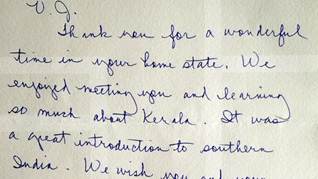 V.J.
Thank you for a wonderful
time in your home state. We
enjoyed meeting you and learning
so much about Kerala. It was
a great introduction to southern
India. We wish you and your